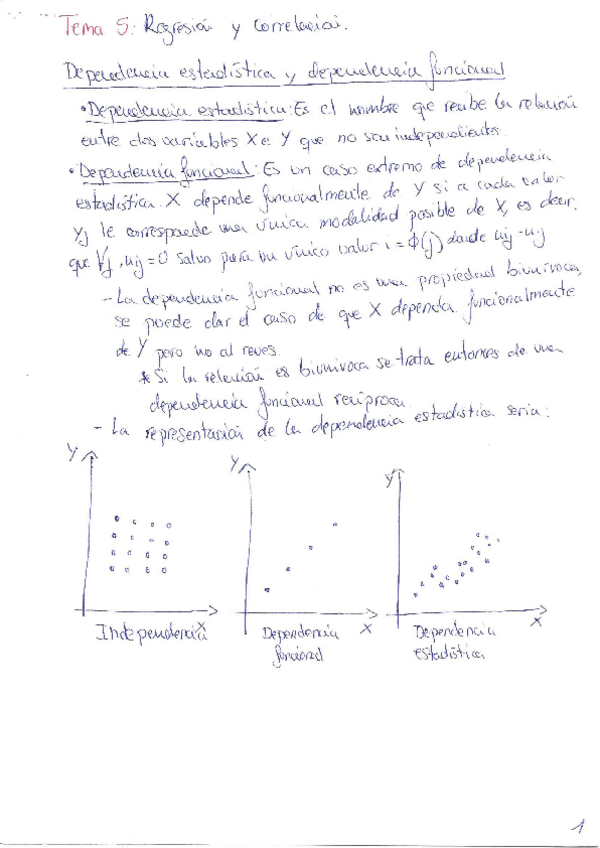 Tema 5: Regresión y correlación.
Dependencia estadística y dependencia funcional
• Dependencia estadística: Es el nombre que recibe la relación
entre dos variables X e Y que no son independientes.
• Dependencia funcional: Es un caso extremo de dependencia
estadística. X depende funcionalmente de Y si a cada valor
Yj le corresponde una única modalidad posible de X, es decir,
que ∀j, nij = 0 salvo para un único valor i = Φ(j) donde nij = n.j
- La dependencia funcional no es una propiedad biunívoca,
se puede dar el caso de que X dependa funcionalmente
de Y pero no al revés.
* Si la relación es biunívoca se trata entonces de una
dependencia funcional recíproca.
- La representación de la dependencia estadística sería:
Y Y Y
X X X
Independencia Dependencia Dependencia
funcional estadística
1